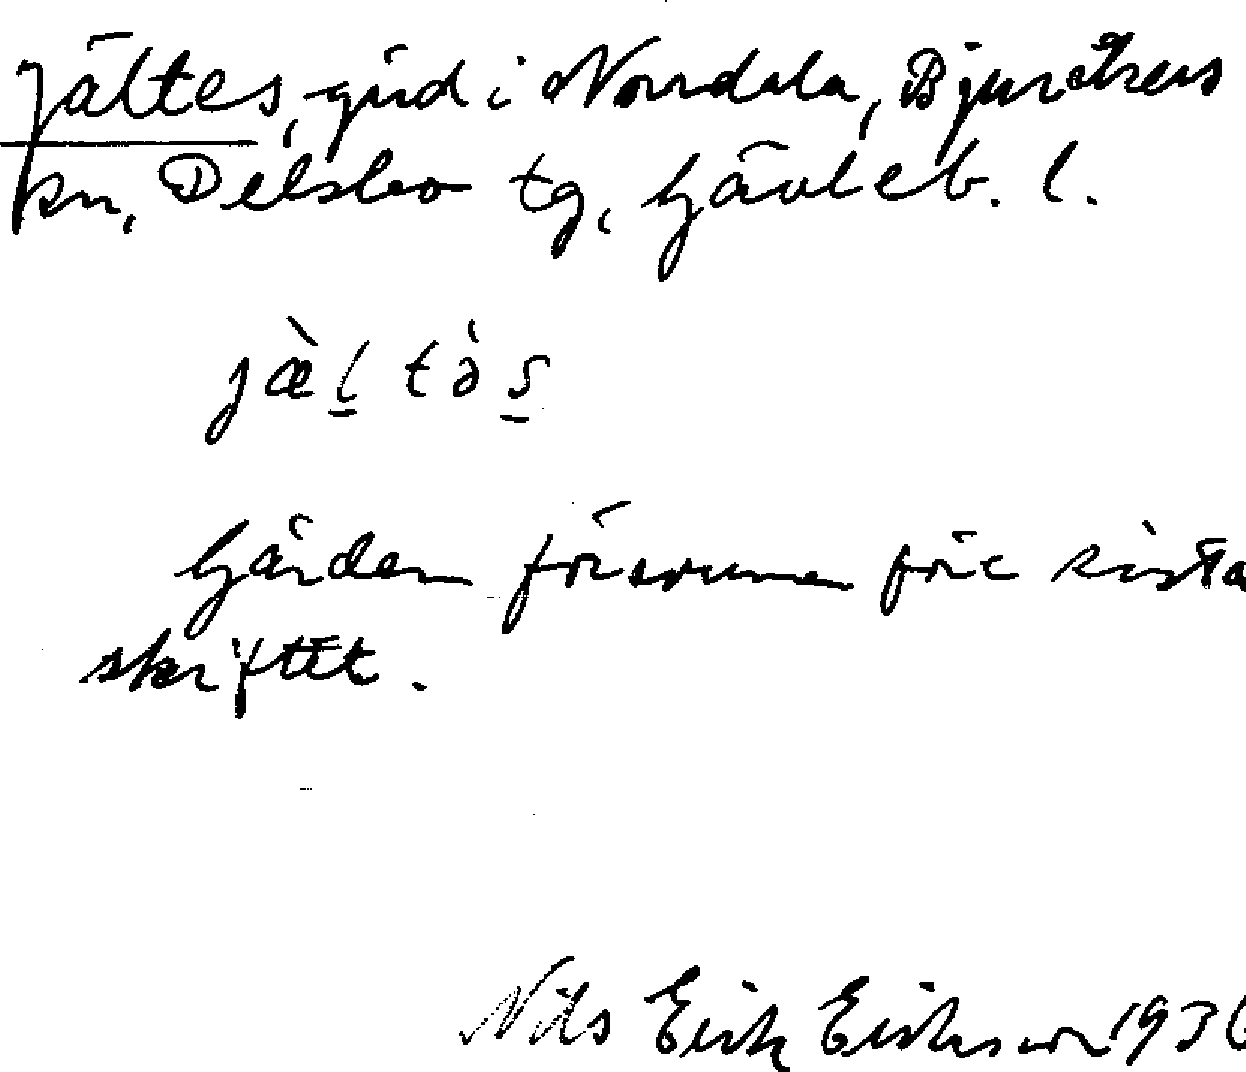 Jältes, gård i Norrdala, Bjuråkers
sn, Delsbo tg, Gävleb. l.
jæ̀l̠tə̀s̠
Gården försvunnen före sista
skiftet.
Nils Erik Eriksson 1936